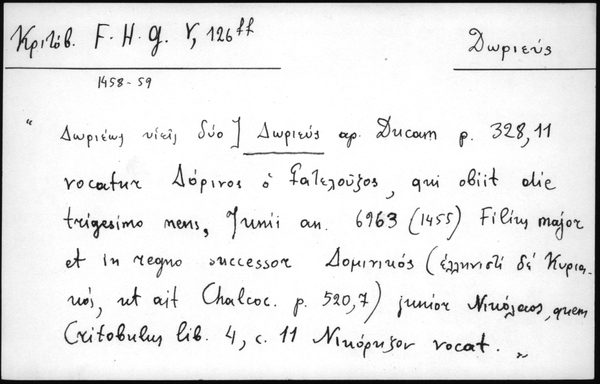 Κριτόβ. F. H. G. V, 126 ff
Δωριεύς
1458-59
" Δωριέως υἱεῖς δύο] Δωριεύς ap. Ducam p. 328,11
vocatur Δόρινος ὁ Γατελοῦζος, qui obiit die
trigesimo mens, Junii an. 6963 (1455) Filius major
et in regno successor Δομινικός (ἑλληνιστί δέ Κυρια-
κός, ut ait Chalcoc. p. 520,7) junior Νικόλαος, quem
Critobulus lib. 4, c. 11 Νικόρυζον vocat. "